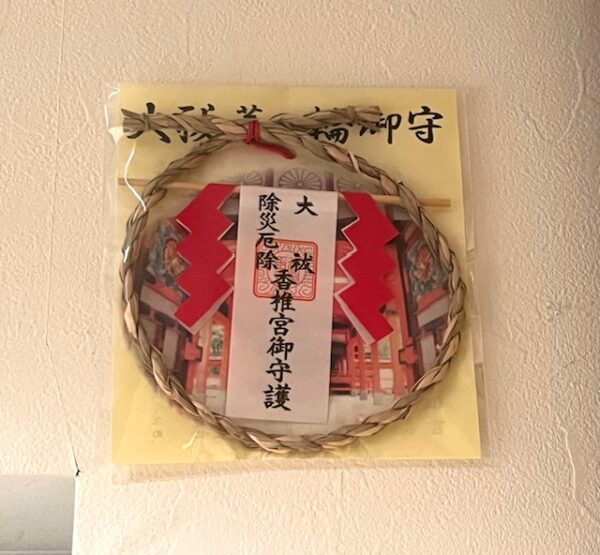 大祓茅 輪御守
大祓
除災厄除
香椎宮御守護